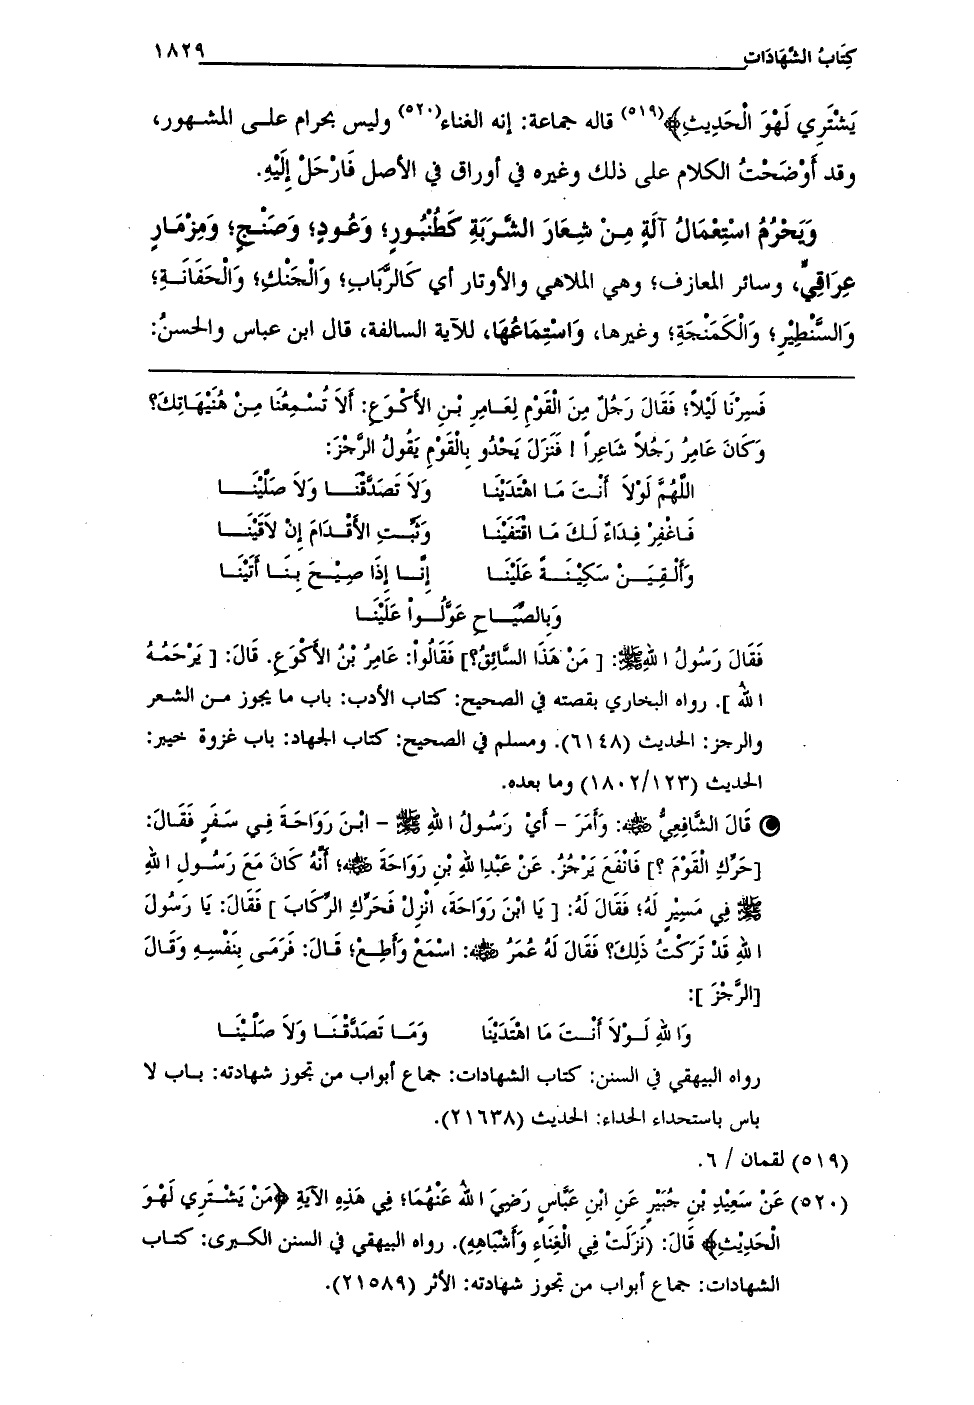 كِتَابُ الشَّهَادَات ١٨٢٩
يَشْتَرِي لَهْوَ الْحَدِيثِ﴾(٥١٩) قاله جماعة: إنه الغناء(٥٢٠) وليس بحرام على المشهور،
وقد أَوْضَحْتُ الكلام على ذلك وغيره في أوراق في الأصل فَارْحَلْ إِلَيْهِ.
وَيَحْرُمُ اسْتِعْمَالُ آلَةٍ مِنْ شِعَارَ الشَّرَبَةِ كَطُنْبُورٍ؛ وَعُودٍ؛ وَصَنْجٍ؛ وَمِزْمَارٍ
عِرَاقِيٍّ، وسائر المعازف؛ وهي الملاهي والأوتار أي كَالرَّبَابِ؛ وَالْجَنْكِ؛ وَالْحَفَانَةِ؛
وَالسَّنْطِيْرِ؛ وَالْكَمَنْجَةِ؛ وغيرها، وَاسْتِمَاعُهَا، للآية السالفة، قال ابن عباس والحسنُ:
فَسِرْنَا لَيْلاً؛ فَقَالَ رَجُلٌ مِنَ الْقَوْمِ لِعَامِرِ بْنِ الأَكْوَعِ: أَلاَ تُسْمِعُنَا مِنْ هُنَيْهَاتِكَ؟
وَكَانَ عَامِرُ رَجُلاً شَاعِراً ! فَنَزَلَ يَحْدُو بِالْقَوْمِ يَقُولُ الرَّجْزَ:
اللَّهُمَّ لَوْلاَ أَنْتَ مَا اهْتَدَيْنَا وَلاَ تَصَدَّقْنَا وَلاَ صَلَّيْنَا
فَاغْفِرْ فِدَاءٌ لَكَ مَا اقْتَفَيْنَا وَثَبِّتِ الأَقْدَامَ إِنْ لاَقَيْنَا
وَأَلْقِيَنْ سَكِيْنَةً عَلَيْنَا إِنَّا إِذَا صِيْحَ بِنَا أَتَيْنَا
وَبِالصِّيَاحِ عَوَّلُواْ عَلَيْنَا
فَقَالَ رَسُولُ اللهِ ﷺ: [ مَنْ هَذَا السَّائِقُ؟] فَقَالُواْ: عَامِرُ بْنُ الأَكْوَعِ. قَالَ: [ يَرْحَمُهُ
اللهُ ]. رواه البخاري بقصته في الصحيح: كتاب الأدب: باب ما يجوز من الشعر
والرجز: الحديث (٦١٤٨). ومسلم في الصحيح: كتاب الجهاد: باب غزوة خيبر:
الحديث (١٨٠٢/١٢٣) وما بعده.
قَالَ الشَّافِعِيُّ ﷺ: وَأَمَرَ - أَيْ رَسُولُ اللهِ ﷺ - ابْنَ رَوَاحَةَ فِي سَفَرٍ فَقَالَ:
[حَرِّكِ الْقَوْمَ ؟] فَانْفَعَ يَرْجُزُ. عَنْ عَبْدِاللهِ بْنِ رَوَاحَةَ ﷺ؛ أَنَّهُ كَانَ مَعَ رَسُولِ اللهِ
ﷺ فِي مَسِيْرٍ لَهُ؛ فَقَالَ لَهُ: [ يَا ابْنَ رَوَاحَةَ، انْزِلْ فَحَرِّكِ الرِّكَابَ ] فَقَالَ: يَا رَسُولَ
اللهِ قَدْ تَرَكْتُ ذَلِكَ؟ فَقَالَ لَهُ عُمَرُ ﷺ: اسْمَعْ وَأَطِعْ؛ قَالَ: فَرَمَى بِنَفْسِهِ وَقَالَ
[الرَّجْزَ ]:
وَاللهِ لَوْلاَ أَنْتَ مَا اهْتَدَيْنَا وَمَا تَصَدَّقْنَا وَلاَ صَلَّيْنَا
رواه البيهقي في السنن: كتاب الشهادات: جماع أبواب من تجوز شهادته: باب لا
باس باستحداء الحداء: الحديث (٢١٦٣٨).
(٥١٩) لقمان / ٦.
(٥٢٠) عَنْ سَعِيْدِ بْنِ جُبَيْرٍ عَنِ ابْنِ عَبَّاسٍ رَضِيَ اللهُ عَنْهُمَا؛ فِي هَذِهِ الآيَةِ ﴿مَنْ يَشْتَرِي لَهْوَ
الْحَدِيْثِ﴾ قَالَ: (نَزَلَتْ فِي الْغِنَاءِ وَأَشْبَاهِهِ). رواه البيهقي في السنن الكبرى: كتاب
الشهادات: جماع أبواب من تجوز شهادته: الأثر (٢١٥٨٩).